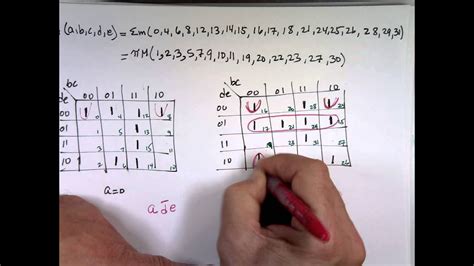 (a,b,c,d,e) = Σm(0,4,6,8,12,13,14,15, 16,17, 18, 21,24,25,26, 28,29,31)
= πM(1,2,3,5,7,9,10,11,19,20,22,23,27,30)
bc
de 00 01 11 10
00 1 0 1 4 1 12 1 8
01 1 5 1 13 9
11 3 7 1 15 11
10 2 1 6 1 14 10
a=0
bc
de 00 01 11 10
00 1 16 20 1 28 1 24
01 1 17 1 21 1 29 1 25
11 1 31 27
10 1 1 26
a d̄ e